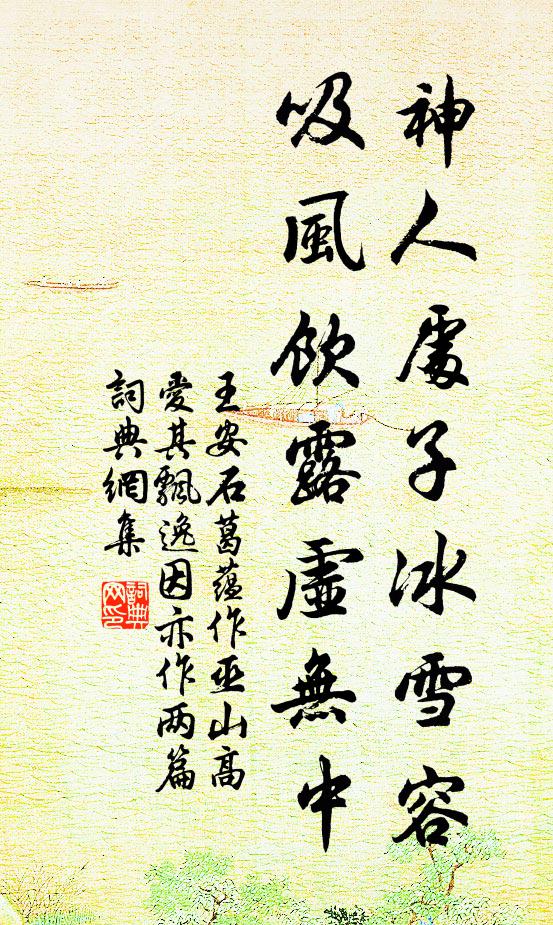 神人處子冰雪容
吸風飲露虛無中
王安石葛蘊作巫山高
愛其飄逸因亦作兩篇
詞典網集
詞典
网印